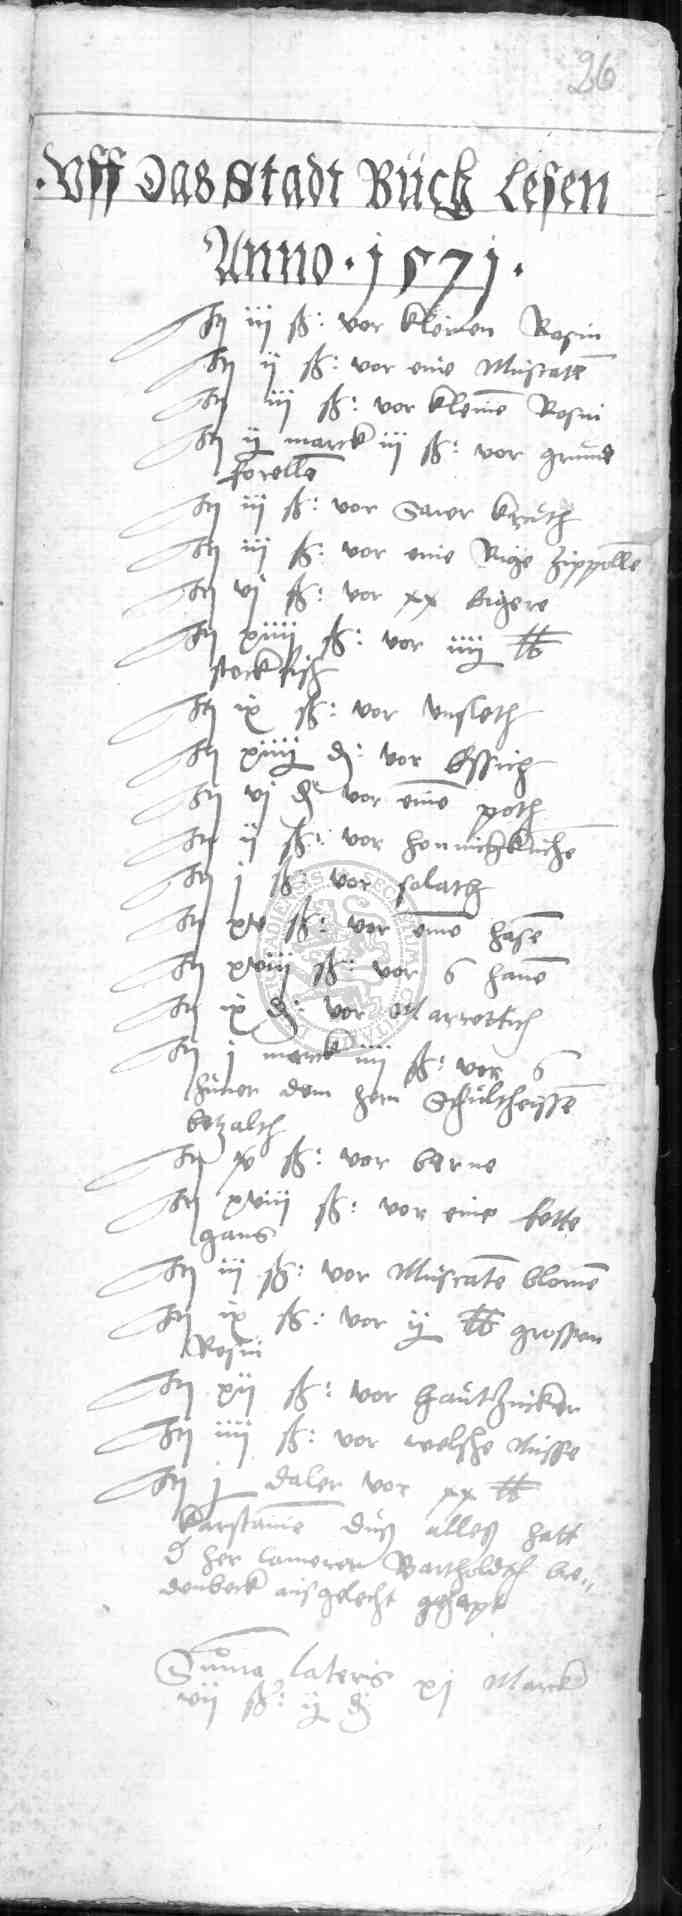 26
Vff das Stadt Büch lesen
Anno · 1571 ·
It iii ß: vor kleinen Rosin
It ij ß: vor eine Muscatē
It iii ß: vor kleinē Rosin
It ij marck iii ß: vor grune
forellē
It iii ß: vor Sawr krauth
It iii ß: vor eine Rige Zippollē
It vj ß: vor xx eigere
It xiiij ß: vor iiij ℔
stockfish
It ix ß: vor vnsleth
It xiiij d: vor Essich
It vj d: vor eine poth
It ij ß: vor honnichkuchē
It j ß: vor salath
It xv ß: vor eine hasē
It xviii ß: vor 6 hanē
It ix d: vor Marrettich
It j marck iiii ß: vor 6
hüner dem hern Schultheissē
betzalth
It xv ß: vor berne
It xviii ß: vor eine fette
gans
It iii ß: vor Muscatē blomē
It ix ß: vor ij ℔ grossen
Rosin
It xij ß: vor hautzucker
It iiii ß: vor welsche Nüsse
It j daler vor xx ℔
karstanie düß alleß hatt
d her camerer Barthold bre„
denbeck ausgelecht gehapt
Suma lateris xj Marck
vij ß: ij d